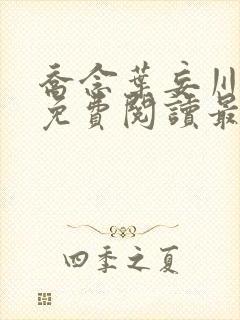 喬念葉妄川
免費閱讀最
四季之夏